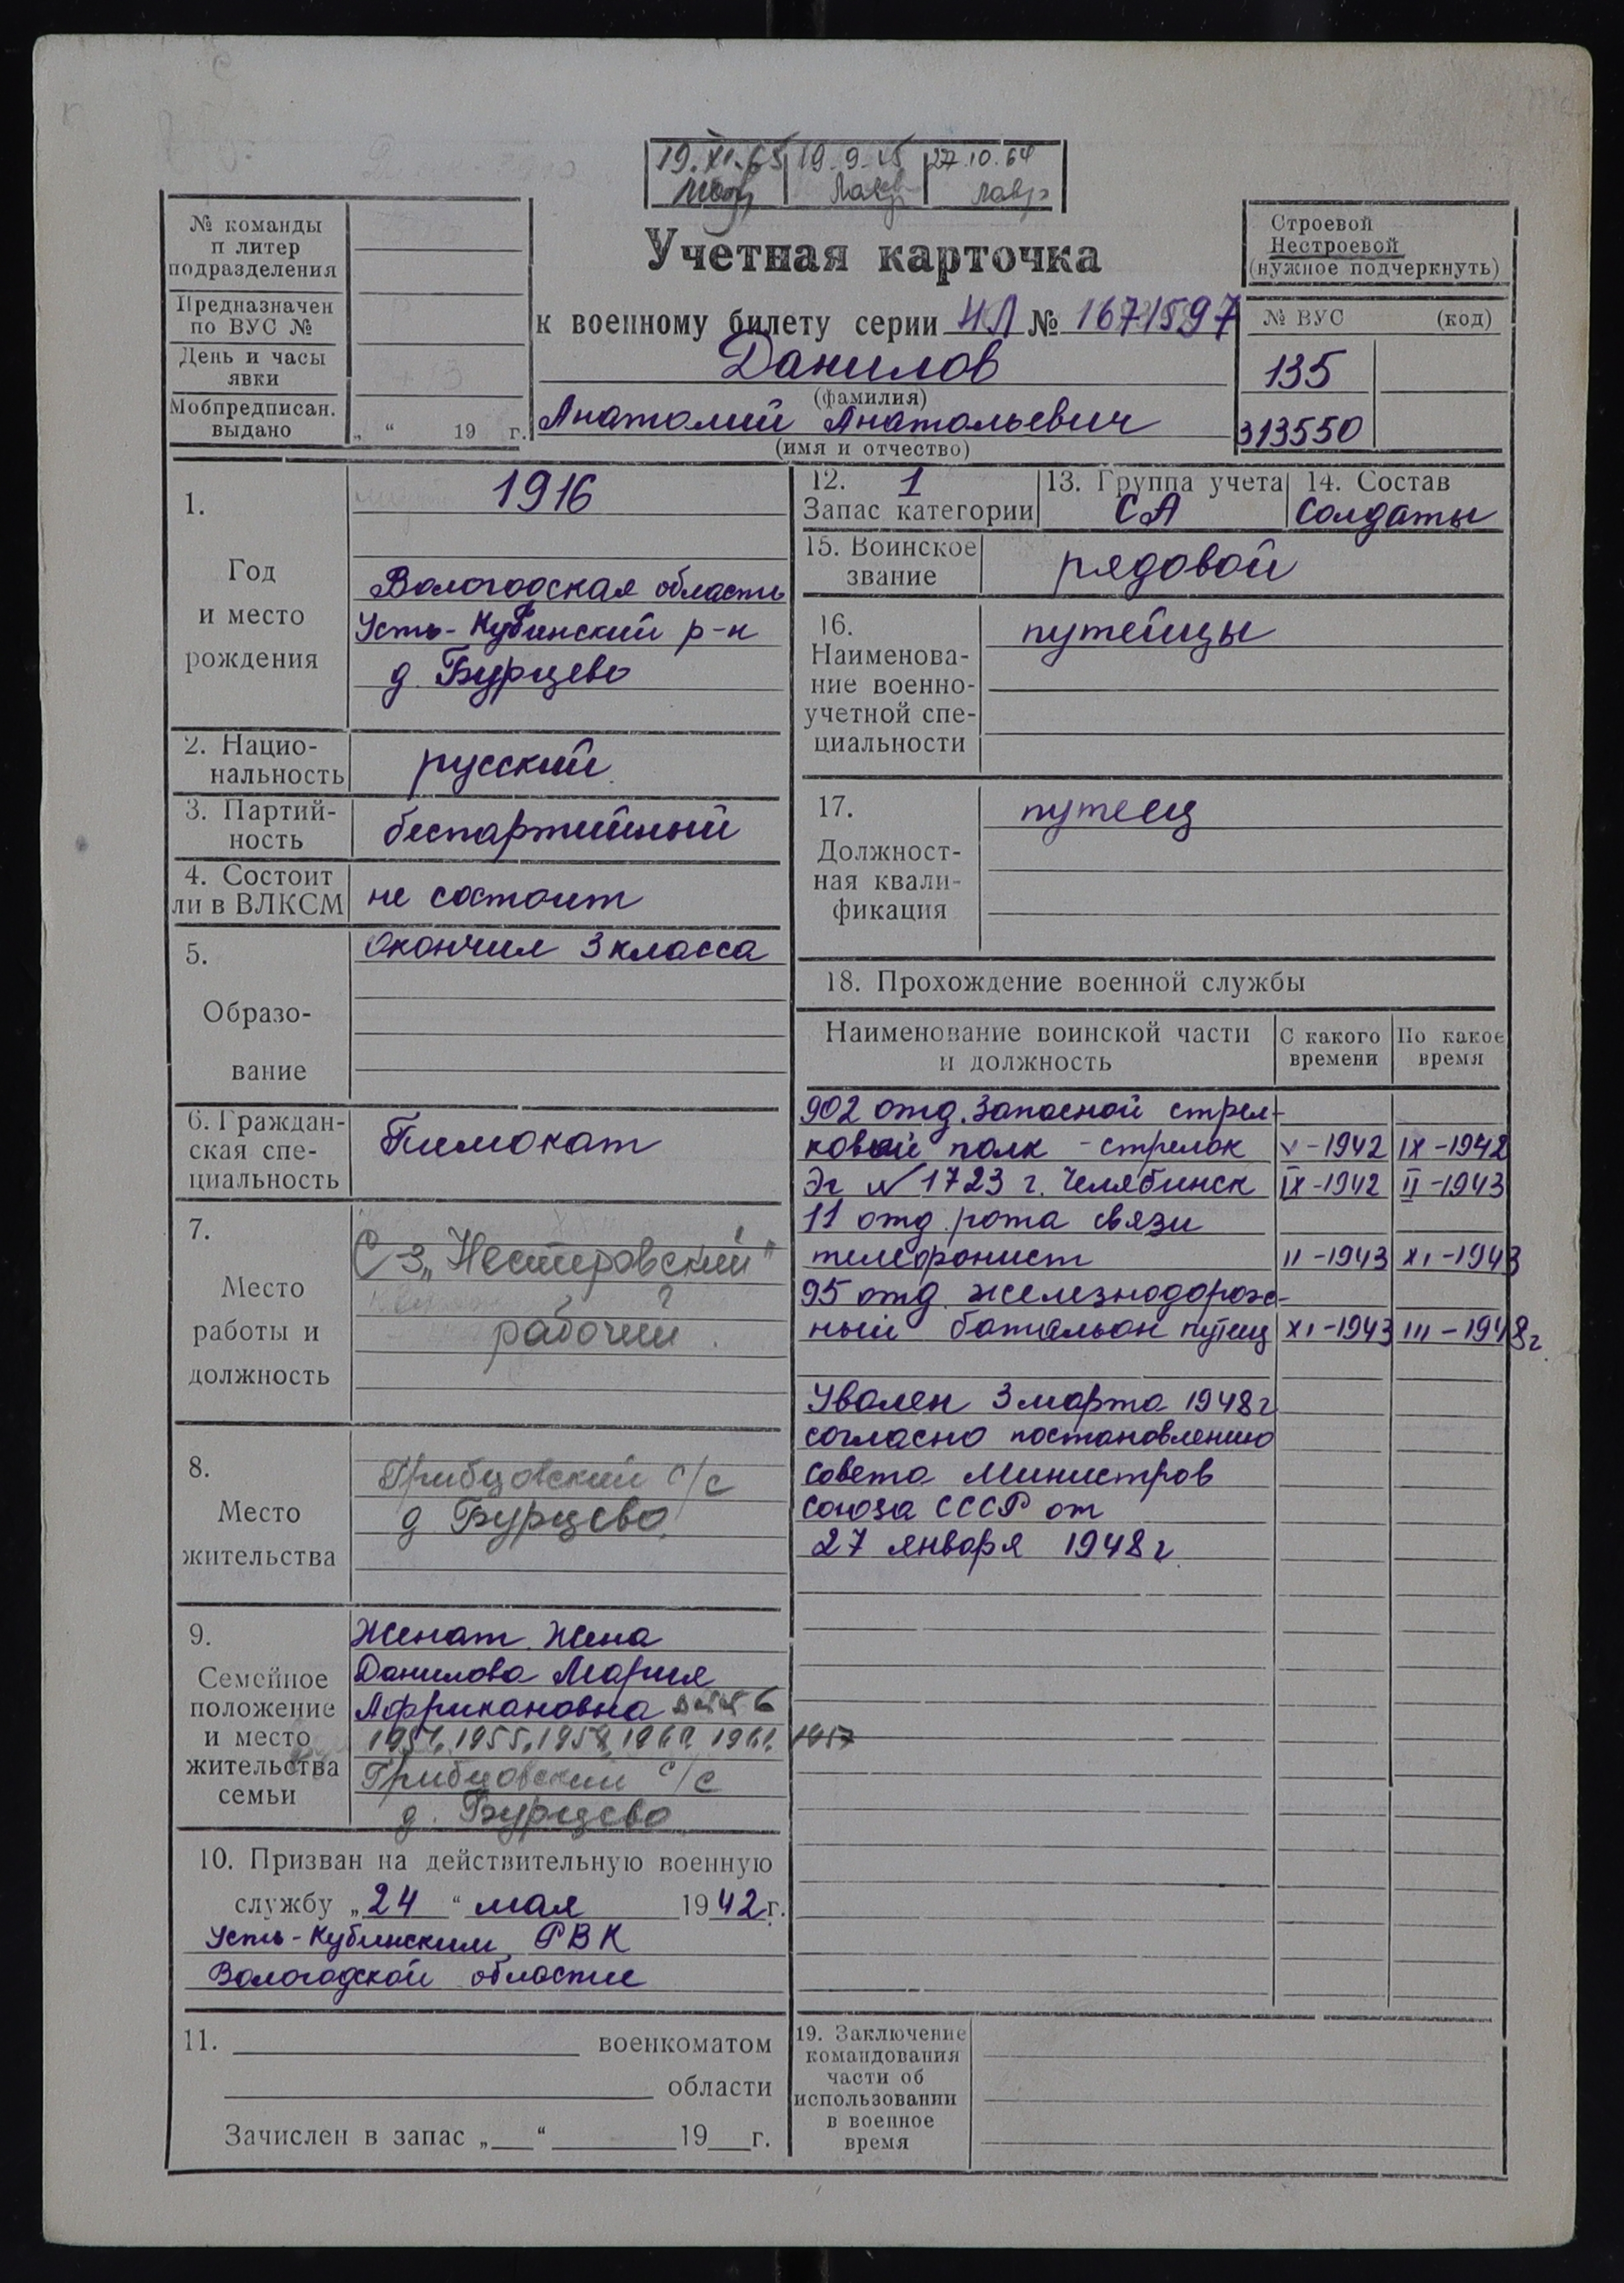 19.XI.65 19.9.65 27.10.64
№ команды
п литер
подразделения
Предназначен
по ВУС №
День и часы
явки
Мобпредписан.
выдано
„ “ 19 г.
Учетная карточка
к военному билету серии НЛ № 1671597
Данилов
(фамилия)
Анатолий Анатольевич
(имя и отчество)
Строевой
Нестроевой
(нужное подчеркнуть)
№ ВУС (код)
135
313550
1.
Год
и место
рождения
1916
Вологодская область
Усть-Кубинский р-н
д. Бурцево
2. Нацио-
нальность
русский
3. Партий-
ность
беспартийный
4. Состоит
ли в ВЛКСМ
не состоит
5.
Образо-
вание
Окончил 3 класса
6. Граждан-
ская спе-
циальность
Пимокат
7.
Место
работы и
должность
С з „Нестеровский"
рабочий.
8.
Место
жительства
Грибцовский с/с
д Бурцево
9.
Семейное
положение
и место
жительства
семьи
Женат. Жена
Данилова Мария
Африкановна
1955, 1957
Грибцовский с/с
д. Бурцево
10. Призван на действительную военную
службу „24“ мая 1942 г.
Усть-Кубинским РВК
Вологодской области
11. военкоматом
области
Зачислен в запас „ “ 19 г.
12. 1
Запас категории
13. Группа учета
СА
14. Состав
Солдаты
15. Воинское
звание
рядовой
16.
Наименова-
ние военно-
учетной спе-
циальности
путейцы
17.
Должност-
ная квали-
фикация
путеец
18. Прохождение военной службы
Наименование воинской части
и должность
С какого
времени
По какое
время
902 отд. запасной стрел-
ковый полк - стрелок V-1942 IX-1942
Эг № 1723 г. Челябинск IX-1942 II-1943
11 отд. рота связи
телефонист II-1943 XI-1943
95 отд. железнодорож-
ный батальон путеец XI-1943 III-1948г.
Уволен 3 марта 1948г
согласно постановлению
Совета Министров
Союза СССР от
27 января 1948г.
19. Заключение
командования
части об
использовании
в военное
время